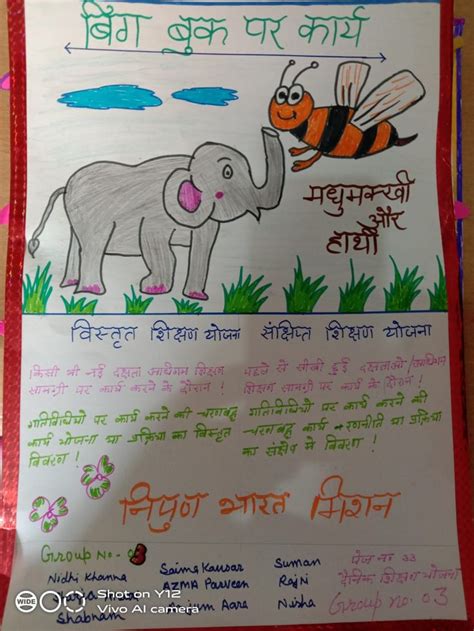 बिग बुक पर कार्य
मधुमक्खी
और
हाथी
विस्तृत शिक्षण योजना
संक्षिप्त शिक्षण योजना
किसी भी नई दक्षता आधारित शिक्षण
सामग्री पर कार्य करने के दौरान !
पहले से सीखी हुई दक्षताओं/आधारित
शिक्षण सामग्री पर कार्य के दौरान !
गतिविधियो पर कार्य करने की चरणबद्ध
कार्य योजना या प्रक्रिया का विस्तृत
विवरण !
गतिविधियो पर कार्य करने की
चरणबद्ध कार्य रणनीति या प्रक्रिया
का संक्षेप मे विवरण !
निपुण भारत मिशन
Group No- 03
Nidhi Khanna
Shabnam
Saima Kausar
AZMA Parveen
Anjum Aara
Suman
Rajni
Nisha
पेज न० 33
दैनिक शिक्षण योजना
Group no. 03
WIDE
Shot on Y12
Vivo AI camera